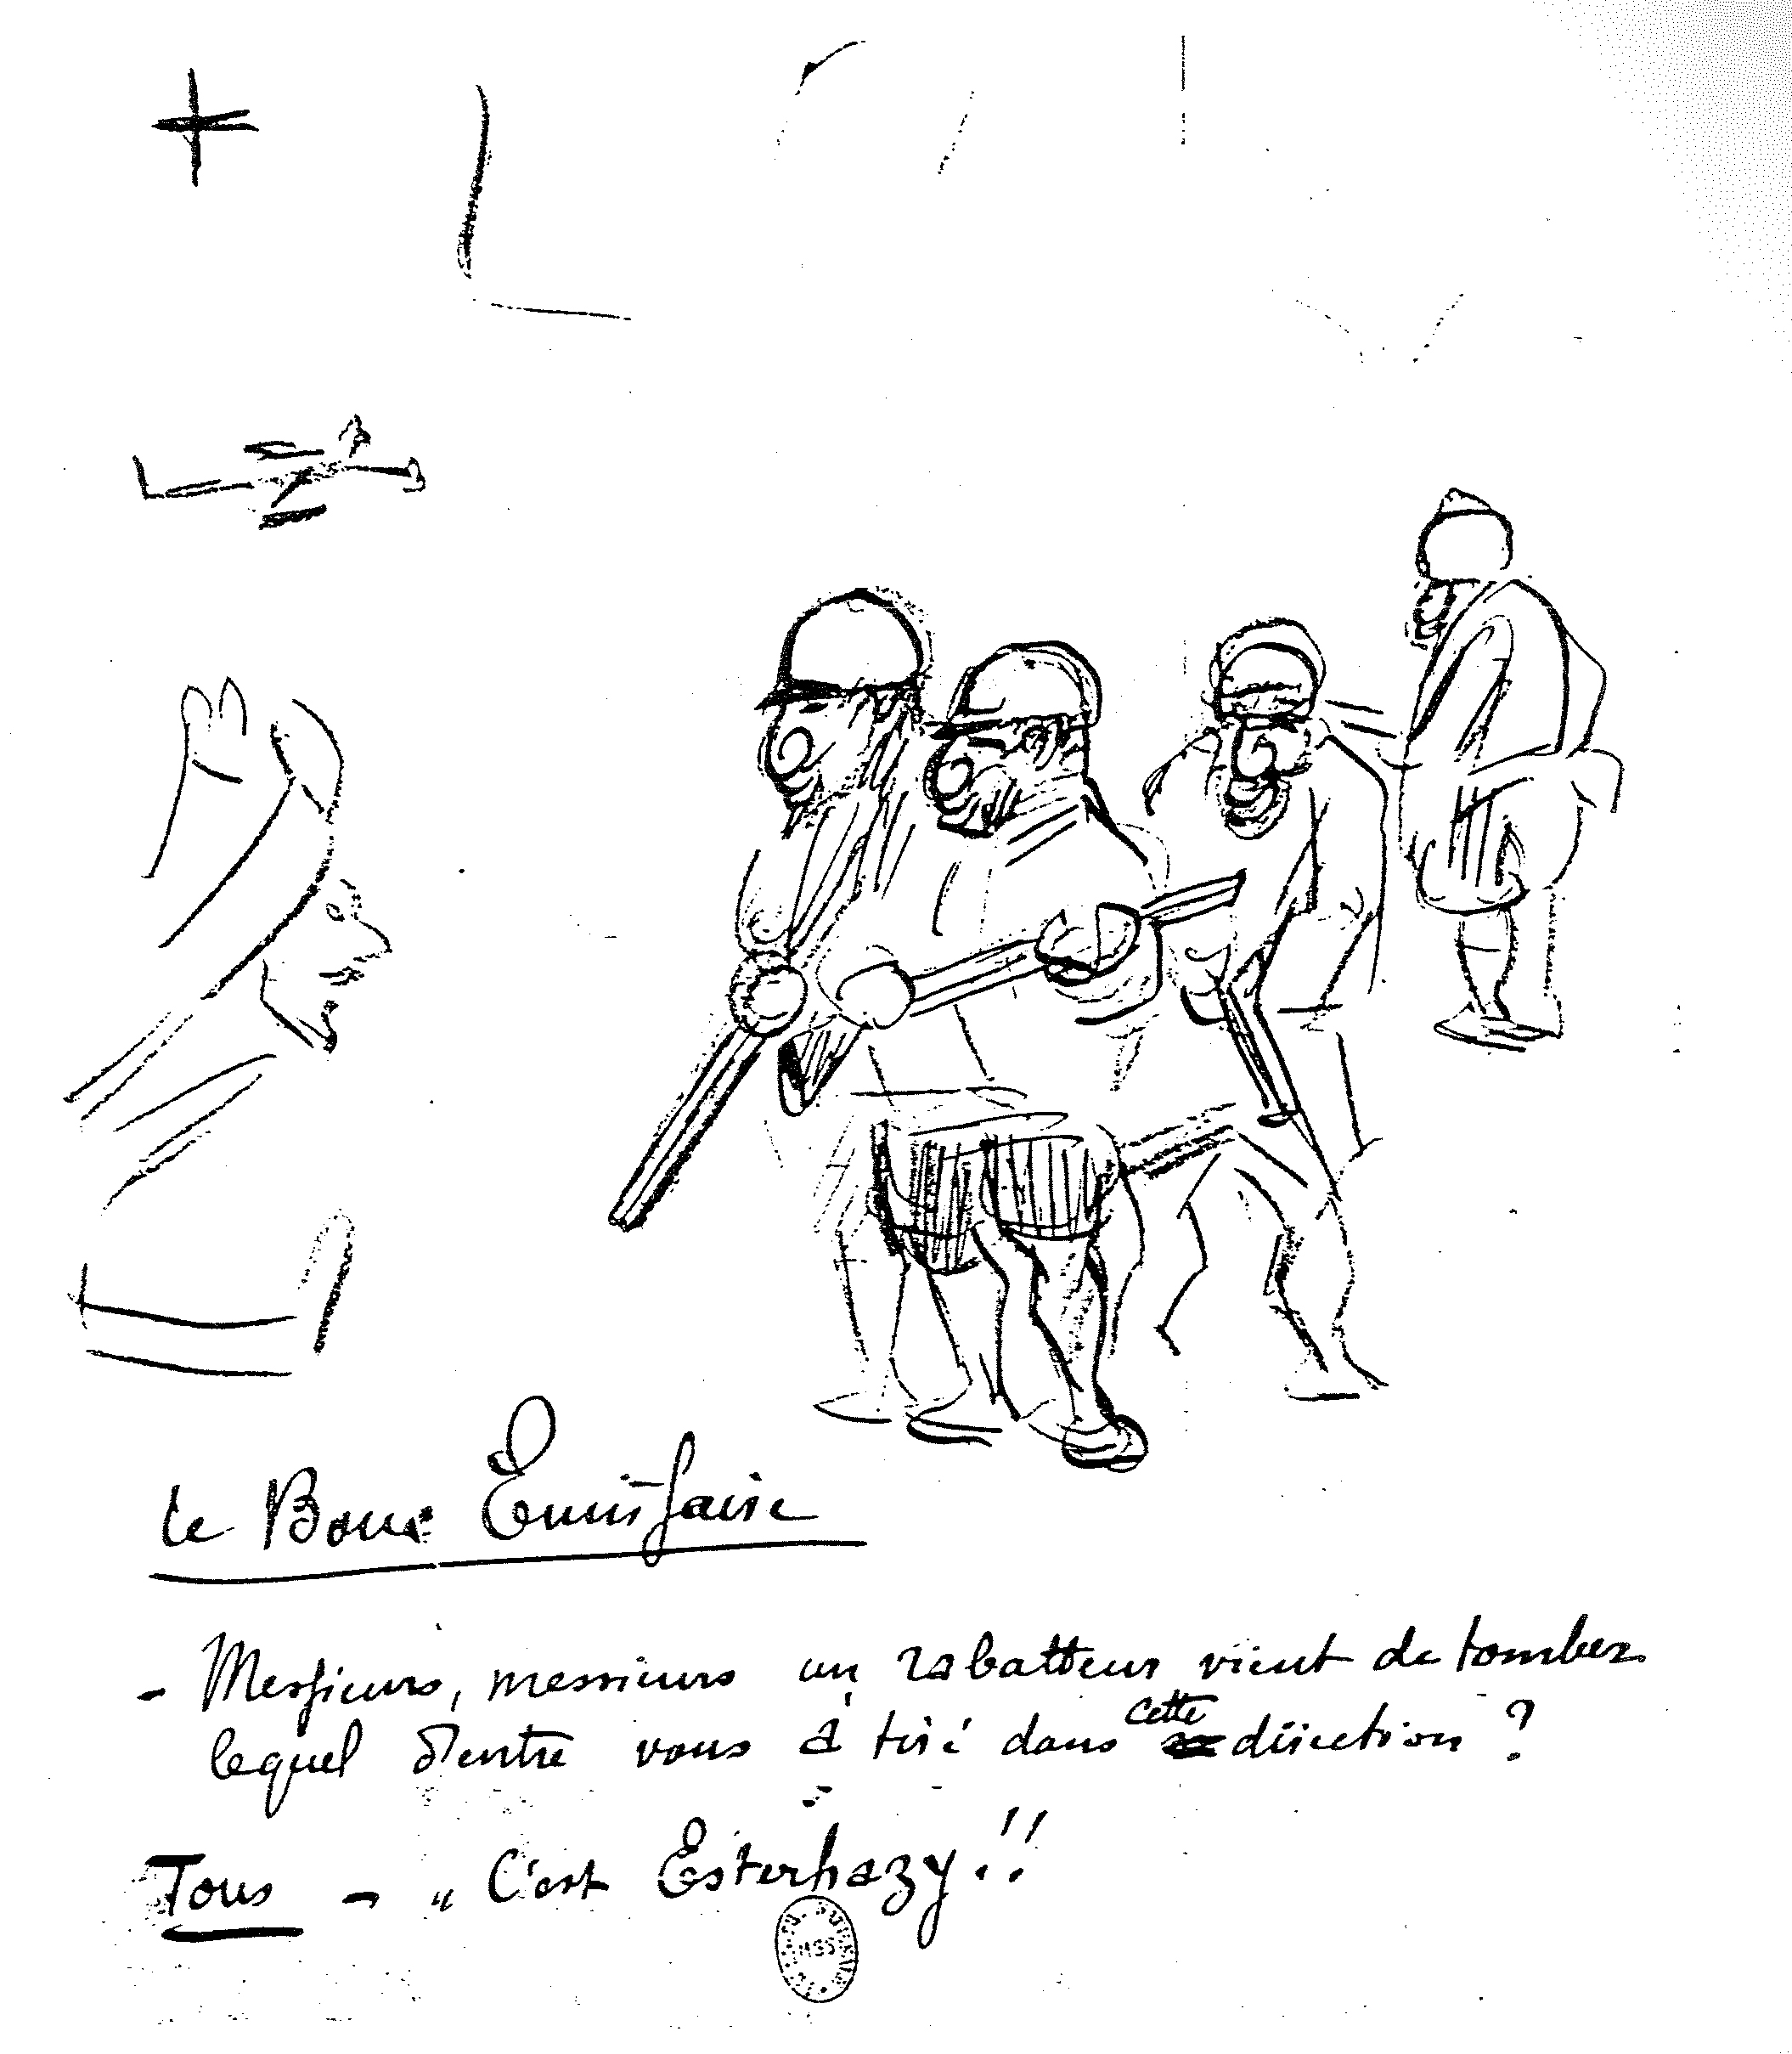 le Bouc Émissaire
- Messieurs, messieurs un rabatteur vient de tomber
lequel d'entre vous a tiré dans cette direction ?
Tous - " C'est Esterhazy !!
MSS